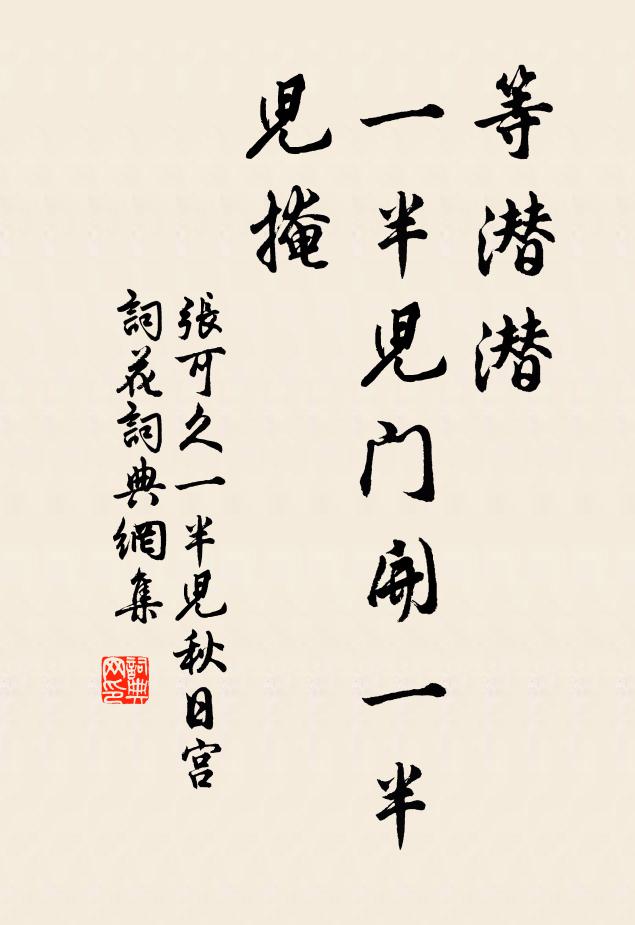 等潜潜
一半兒門開一半
兒掩
張可久一半兒秋日宮
詞花詞典網集
詞典
网印